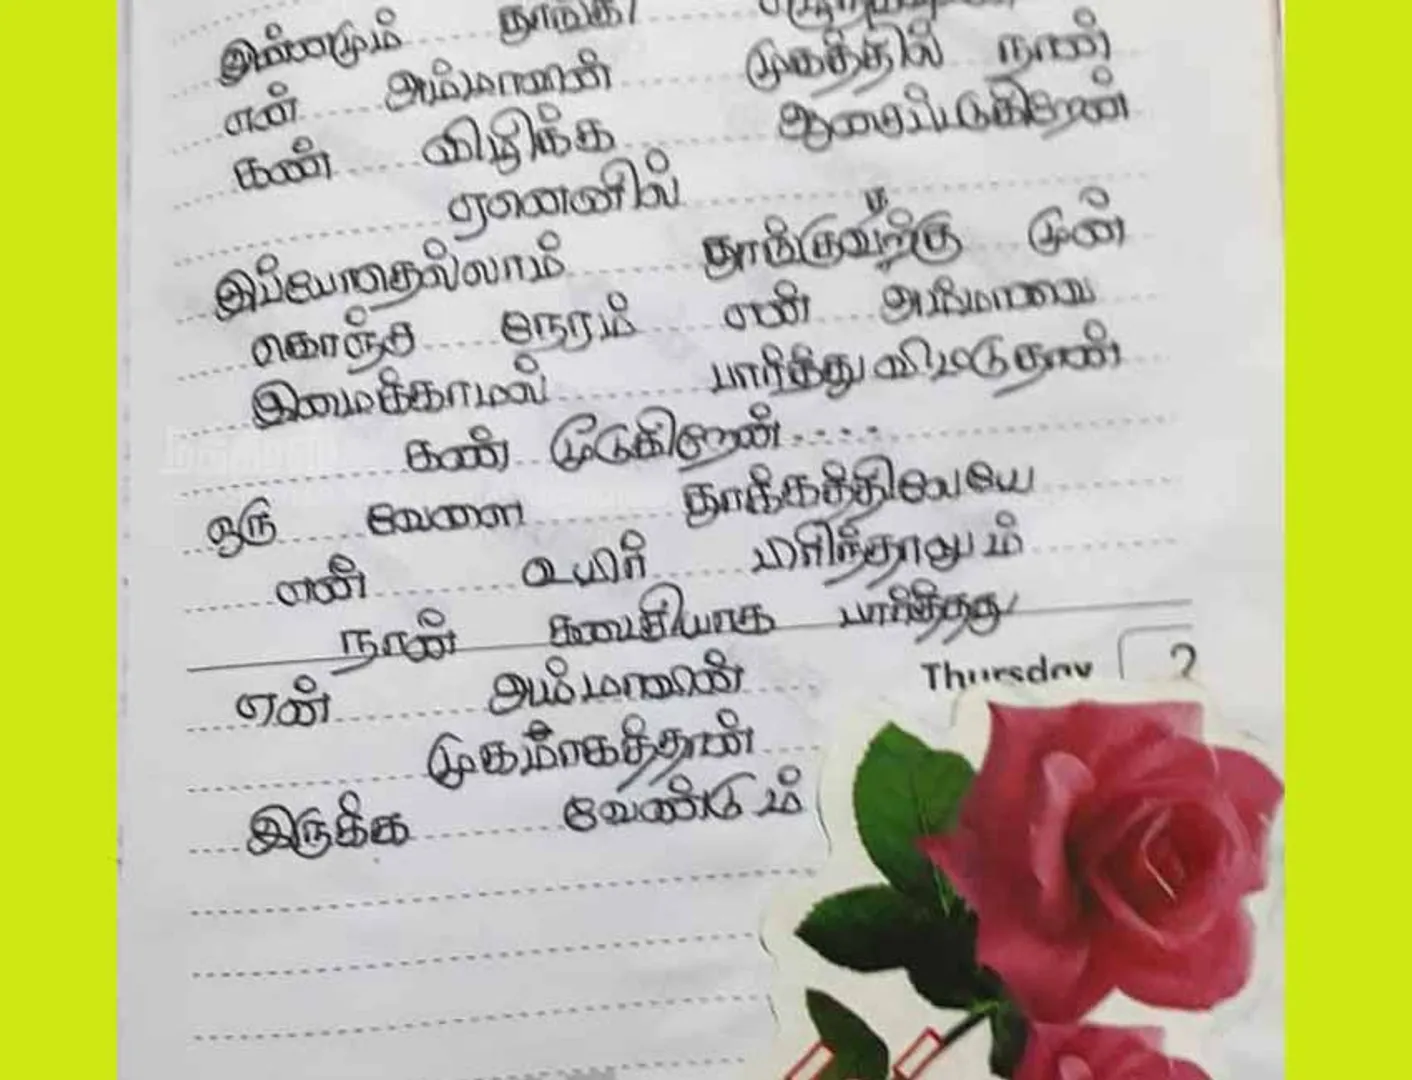 இன்னமும் தூங்கி
என் அம்மாவின் முகத்தில் நான்
கண் விழிக்க ஆசைப்படுகிறேன்
ஏனெனில்
இப்போதெல்லாம் தூங்குவதற்கு முன்
கொஞ்ச நேரம் என் அம்மாவை
இமைக்காமல் பார்த்துவிட்டுதான்
கண் மூடுகிறேன்....
ஒரு வேளை தூக்கத்திலேயே
என் உயிர் பிரிந்தாலும்
நான் கடைசியாக பார்த்தது
என் அம்மாவின்
முகமாகத்தான்
இருக்க வேண்டும்
Thursday 2